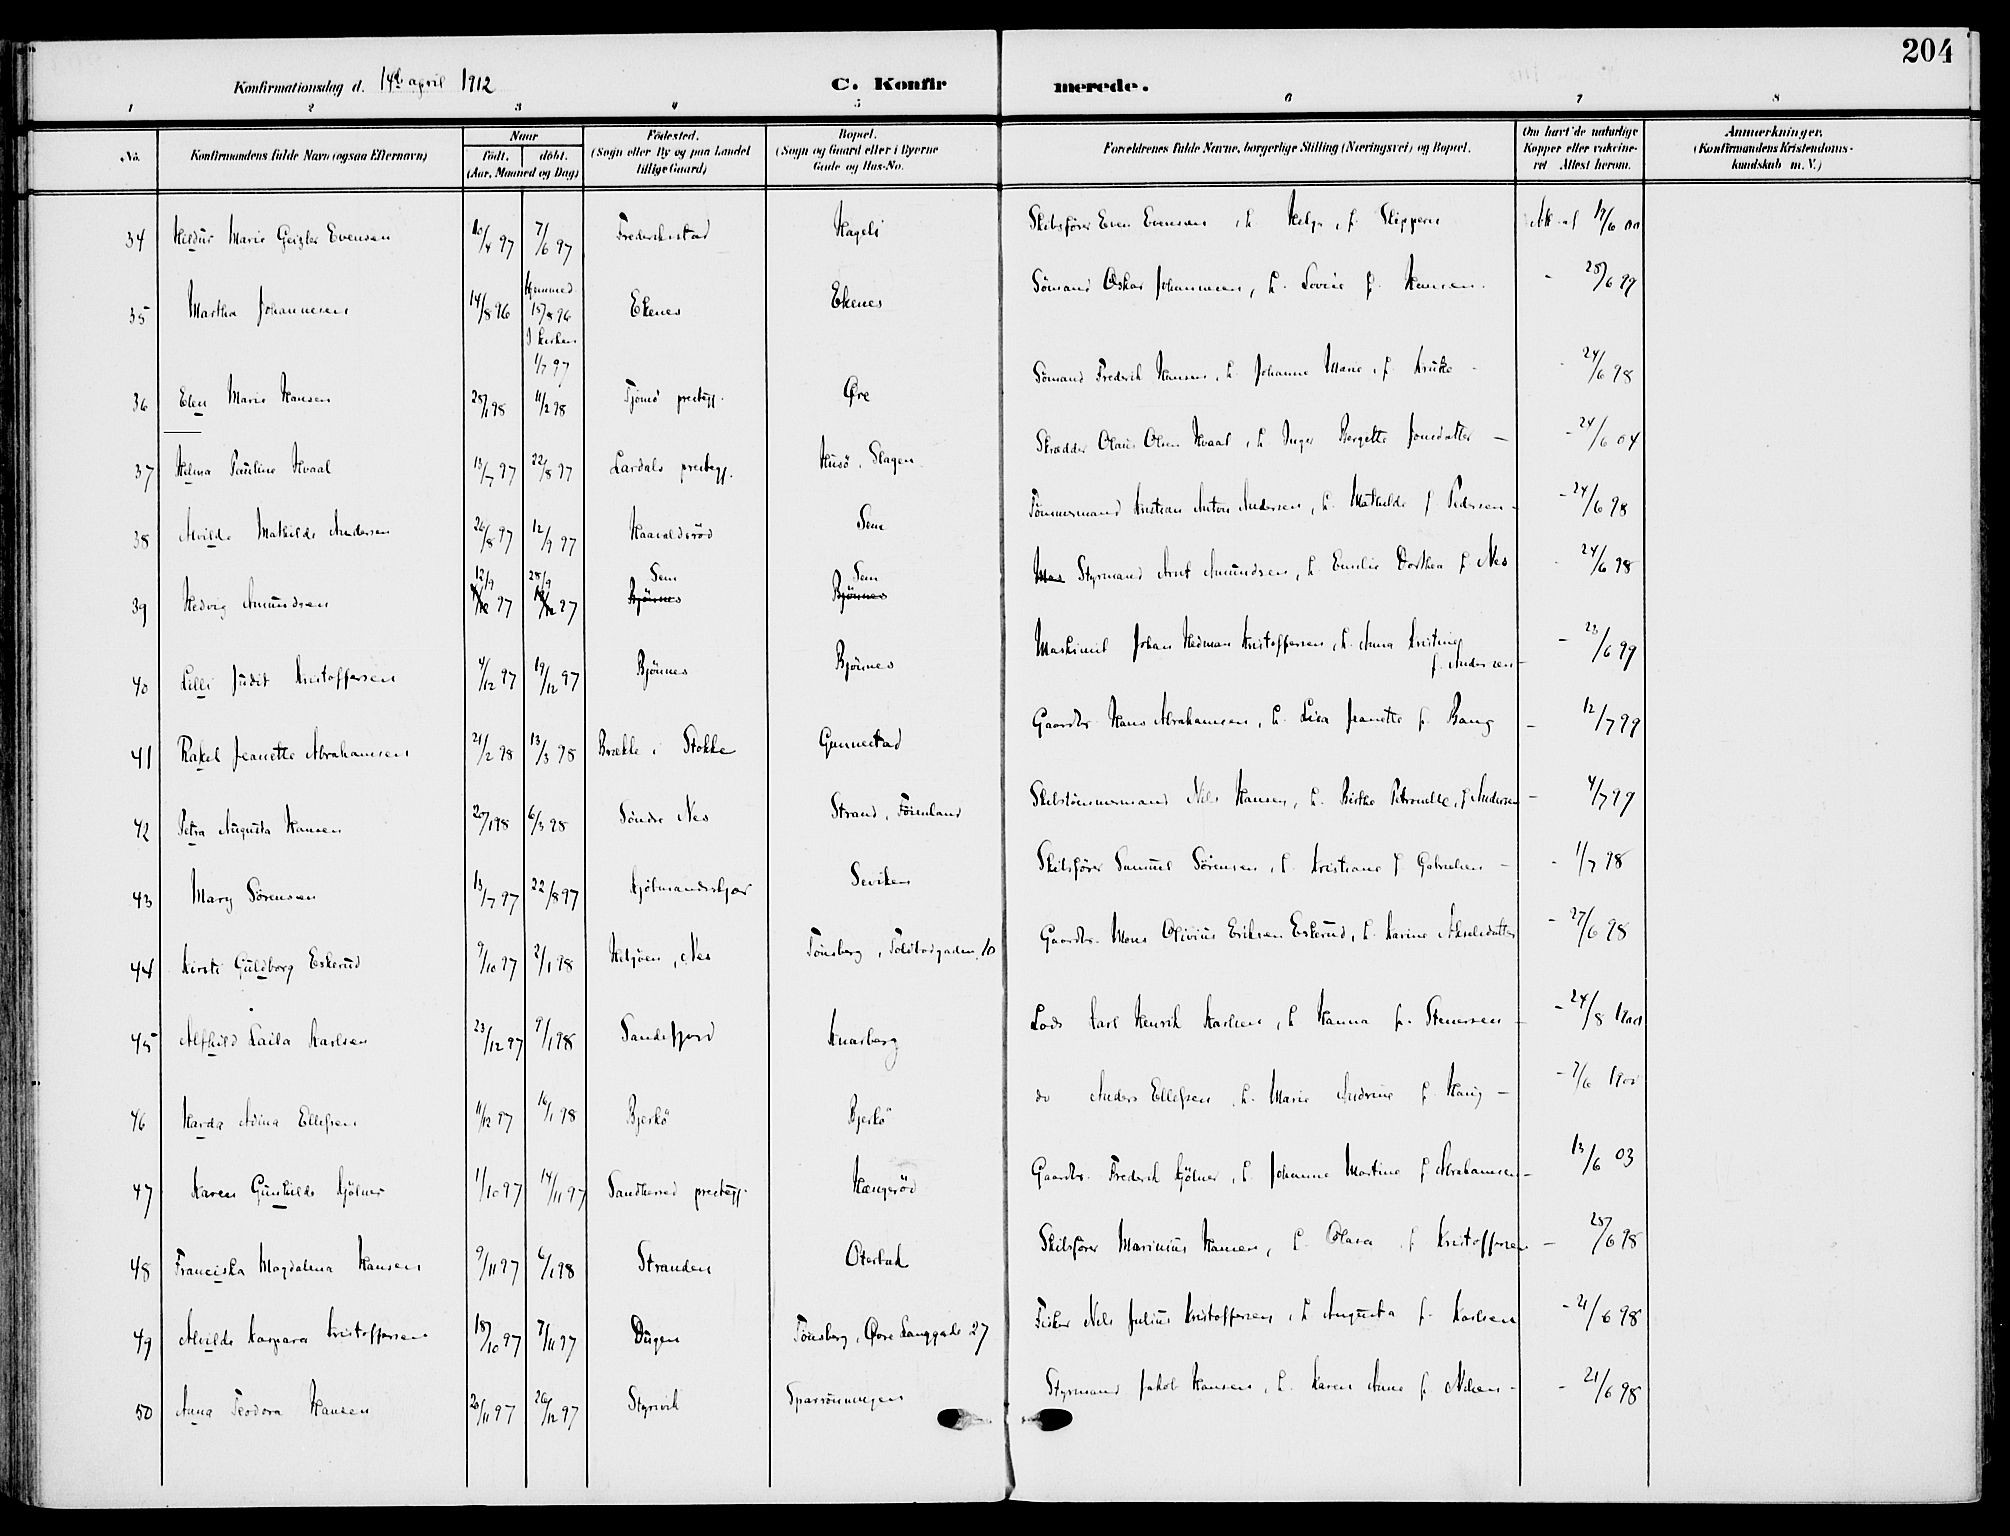 204
Konfirmationsdag d. 14de april 1912
C. Konfirmerede.
1 2 3 4 5 6 7 8
No. Konfirmandens fulde Navn (ogsaa Efternavn) Naar födt. döbt. (Aar, Maaned og Dag) Födested. (Sogn eller By og paa Landet tillige Gaard) Bopæl. (Sogn og Gaard eller i Byerne Gade og Hus-No. Forældrenes fulde Navne, borgerlige Stilling (Næringsvei) og Bopæl. Om havt de naturlige Kopper eller vakcineret Attest herom. Anmærkninger. (Konfirmandens Kristendomskundskab m. V.)
34 Hildur Marie Geizler Evensen 97 7/6 97 Frederikstad Hageli Skibsfører Even Evensen, h. Helga, f. Skippern Att. af
35 Martha Johannesen 14/8 96 Hjemmed. 15/8 96 I kirken 1/7 97 Ekenes Ekenes Sömand Oskar Johannesen, h. Lovise f. Hansen - 28/6 99
36 Elen Marie Hansen 28/1 98 11/2 98 Tjömö prestegj. Øre Sömand Frederik Hansen, h. Johanne Marie, f. Kruke - 24/6 98
37 Helma Pauline Hvaal 13/7 97 22/8 97 Lardals prestegj. Husö, Slagen Skrædder Olaus Olsen Hvaal, h. Inger Bergette Jonsdatter - 24/6 04
38 Alvilde Mathilde Andersen 26/8 97 12/9 97 Haavaldsröd Sem Tömmermand Kristian Anton Andersen, h. Mathilde f. Pedersen - 24/6 98
39 Hedvig Amundsen 12/9 97 28/9 97 Sem Bjönnes Sem Bjönnes Mas Styrmand Arnt Amundsen, h. Emilie Dorthea f. Nes - 24/6 98
40 Lilli Judit Kristoffersen 4/12 97 19/12 97 Bjönnes Bjönnes Maskinist Johan Hedman Kristoffersen, h. Anna Kristine f. Andersen - 23/6 99
41 Rakel Jeanette Abrahamsen 21/2 98 13/3 98 Brekke i Stokke Gunnestad Gaardbr. Hans Abrahamsen, h. Lisa Jeanette f. Bang - 12/7 99
42 Petra Augusta Hansen 20/1 98 6/3 98 Söndre Nes Strand, Föienland Skibstömmermand Nils Hansen, h. Birthe Petronelle, f. Andersen - 4/7 99
43 Mary Sörensen 13/7 97 22/8 97 Kjölmandsskjær Seviken Skibsfører Samuel Sörensen, h. Kristiane f. Gabrielsen - 1/7 98
44 Kirsti Guldborg Eskerud 9/10 97 2/1 98 Helgöen, Nes Tönsberg, Toldbodgaden 10 Gaardbr. Mons Olivius Eriksen Eskerud, h. Karine Akselsdatter - 27/6 98
45 Alfhild Laila Karlsen 23/12 97 9/1 98 Sandefjord Knarberg Lods Karl Henrik Karlsen, h. Hanna f. Stenersen - 24/8
46 Harda Adina Ellefsen 11/12 97 16/1 98 Bjerkö Bjerkö do Anders Ellefsen, h. Marie Andrine f. Haug -
47 Karen Gunhilde Kjölner 1/10 97 14/11 97 Sandherred prestegj. Hængsröd Gaardbr. Frederik Kjölner, h. Johanne Martine f. Abrahamsen - 13/6 03
48 Franciska Magdalena Hansen 9/11 97 6/1 98 Stranden Oterbæk Skibsfører Marinius Hansen, h. Olava f. Kristoffersen - 28/6 98
49 Alvilde Kaspara Kristoffersen 18/10 97 7/11 97 Dugen Tönsberg, Øvre Langgade 27 Fisker Nils Julius Kristoffersen, h. Augusta f. Karlsen - 21/6 98
50 Anna Teodora Hansen 20/11 97 26/12 97 Styrsvik Styrmand Jakob Hansen, h. Karen Anna f. Nilsen - 21/6 98